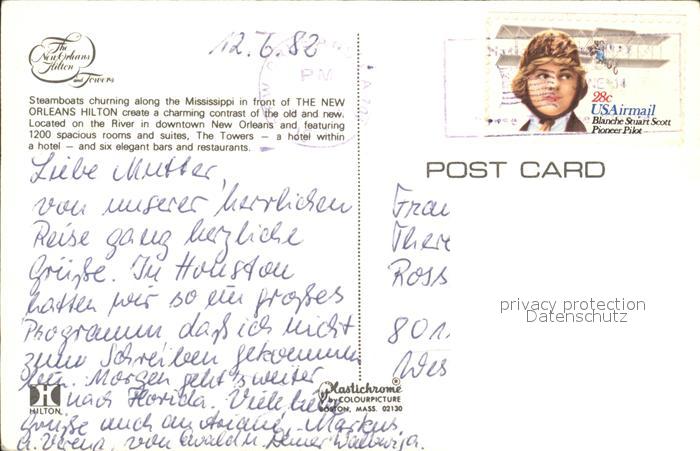 The
New Orleans
Hilton
and Towers
12.6.82
PM
28c
USAirmail
Blanche Stuart Scott
Pioneer Pilot
Steamboats churning along the Mississippi in front of THE NEW
ORLEANS HILTON create a charming contrast of the old and new.
Located on the River in downtown New Orleans and featuring
1200 spacious rooms and suites, The Towers — a hotel within
a hotel — and six elegant bars and restaurants.
POST CARD
Liebe Mutter,
von unserer herrlichen
Reise ganz herzliche
Grüße. In Houston
hatten wir so ein großes
Programm daß ich nicht
zum Schreiben gekommen
bin. Morgen geht's weiter
nach Florida. Viele liebe
Grüße auch an Ariane, Markus,
u. Verena, von Ewald u. Deiner
Frau
Ther
Ross
801
Wes
privacy protection
Datenschutz
HILTON
Plastichrome®
by COLOURPICTURE
BOSTON, MASS. 02130